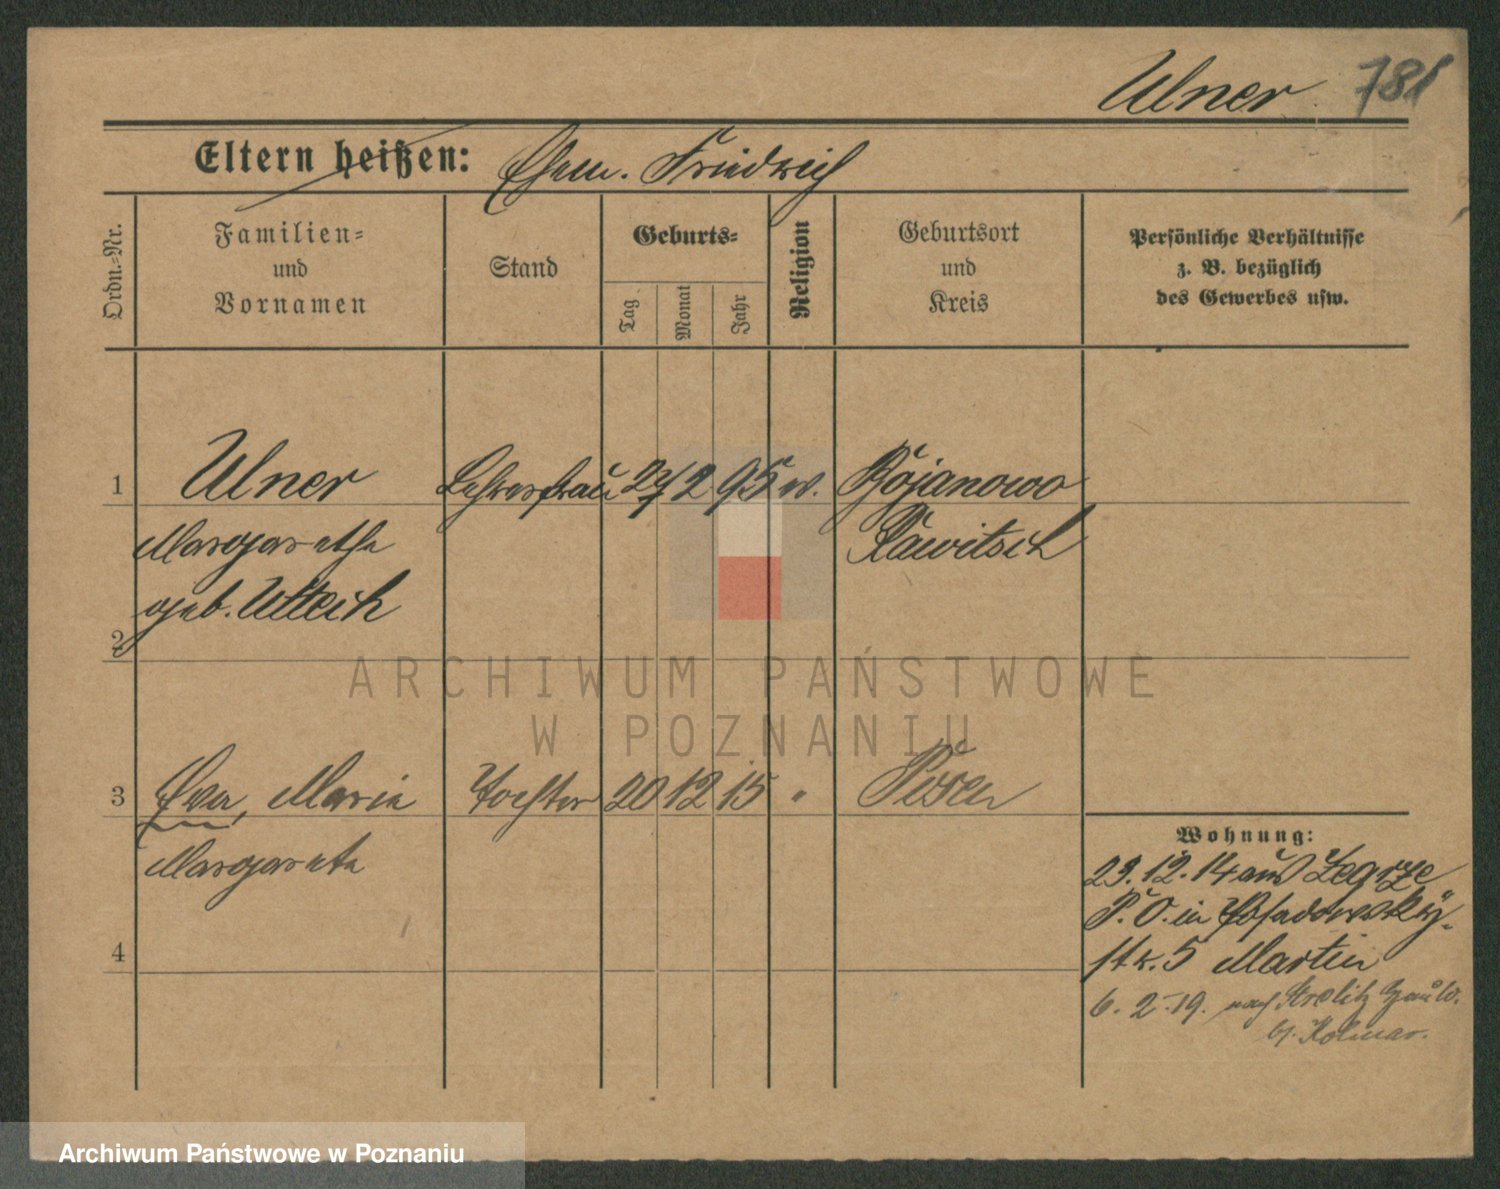 Ulner 781
Eltern heißen: Ehem. Friedrich
Ordn.-Nr.
Familien-
und
Vornamen
Stand
Geburts-
Tag
Monat
Jahr
Religion
Geburtsort
und
Kreis
Persönliche Verhältnisse
z. B. bezüglich
des Gewerbes usw.
1 Ulner Lehrersfrau 27 2 95 ev. Bojanowo
Margarethe Rawitsch
geb. Utteich
2
3 Eva, Maria Tochter 20 12 15 " Posen
Margarete
Wohnung:
23.12.14 aus Zegrze
P. O. in Posadowsky-
str. 5 Martin
4
6. 2. 19. nach Strelitz
b. Kolmar.
ARCHIWUM PAŃSTWOWE
W POZNANIU
Archiwum Państwowe w Poznaniu